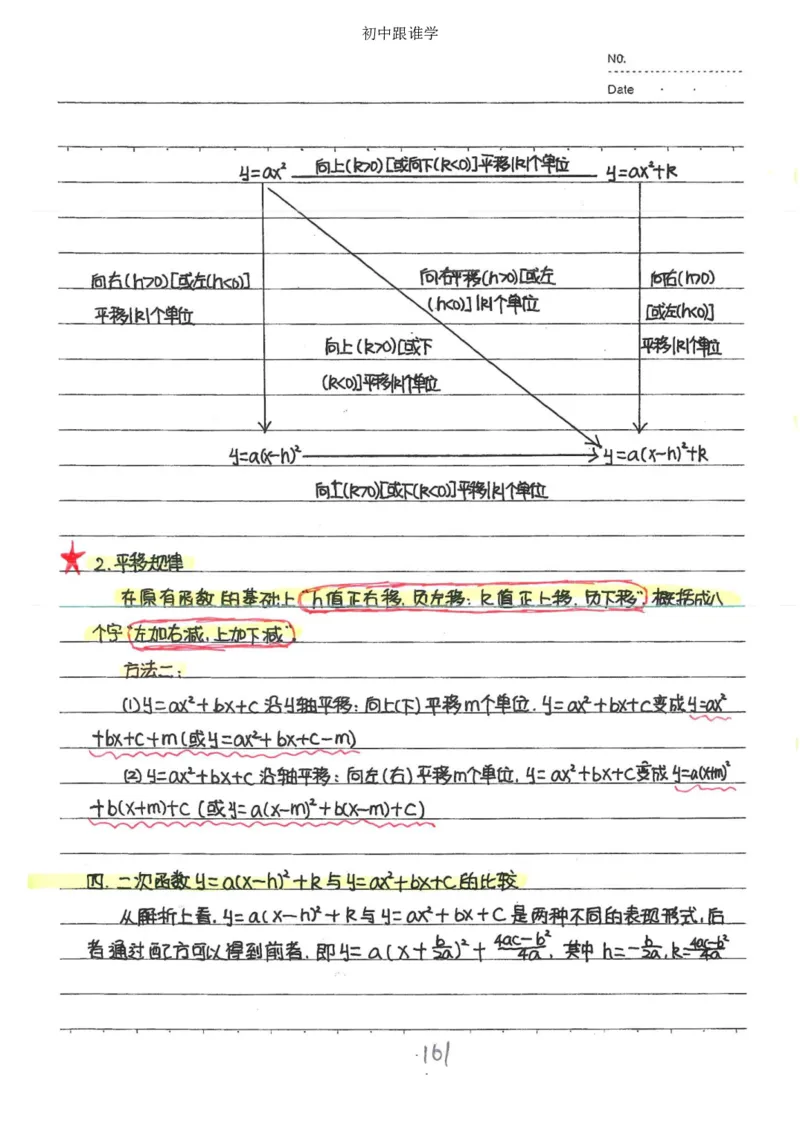 初中跟谁学
NO.
Date
y=ax² 向上(k>0)[或向下(k<0)]平移|k|个单位 y=ax²+k
向右(h>0)[或左(h<0)] 向右平移(h>0)[或左 向右(h>0)
平移|k|个单位 (h<0)]|k|个单位 [或左(h<0)]
向上(k>0)[或下 平移|k|个单位
(k<0)]平移|k|个单位
y=a(x-h)² y=a(x-h)²+k
向上(k>0)[或下(k<0)]平移|k|个单位
2.平移规律
在原有函数的基础上“h值正右移,负左移;k值正上移,负下移”,概括成八
个字“左加右减,上加下减”.
方法二:
(1)y=ax²+bx+c沿y轴平移:向上(下)平移m个单位.y=ax²+bx+c变成y=ax²
+bx+c+m(或y=ax²+bx+c-m)
(2)y=ax²+bx+c沿轴平移:向左(右)平移m个单位,y=ax²+bx+c变成y=a(x+m)²
+b(x+m)+c(或y=a(x-m)²+b(x-m)+c)
四.二次函数y=a(x-h)²+k与y=ax²+bx+c的比较
从解析上看,y=a(x-h)²+k与y=ax²+bx+c是两种不同的表现形式,后
者通过配方可以得到前者,即y=a(x+b/2a)²+(4ac-b²)/4a,其中h=-b/2a,k=(4ac-b²)/4a
161